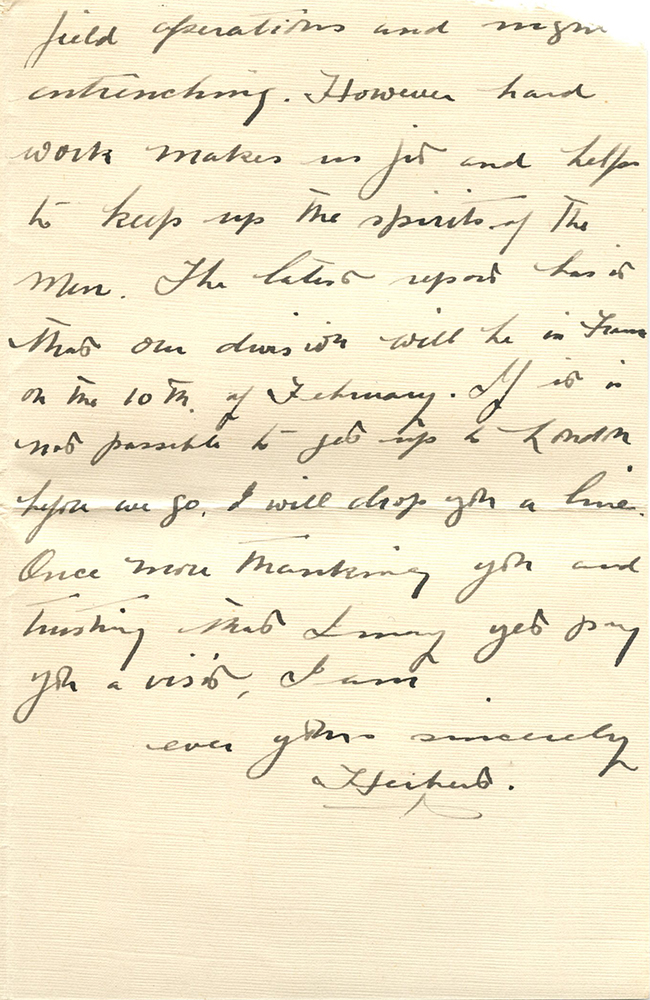 field operations and
entrenching. However hard
work makes us fit and helps
to keep up the spirits of the
men. The latest report has it
that our division will be in France
on the 10th. of February. If it is
not possible to get up to London
before we go, I will drop you a line.
Once more thanking you and
trusting that I may yet pay
you a visit, I am
ever yours sincerely
Herbert.